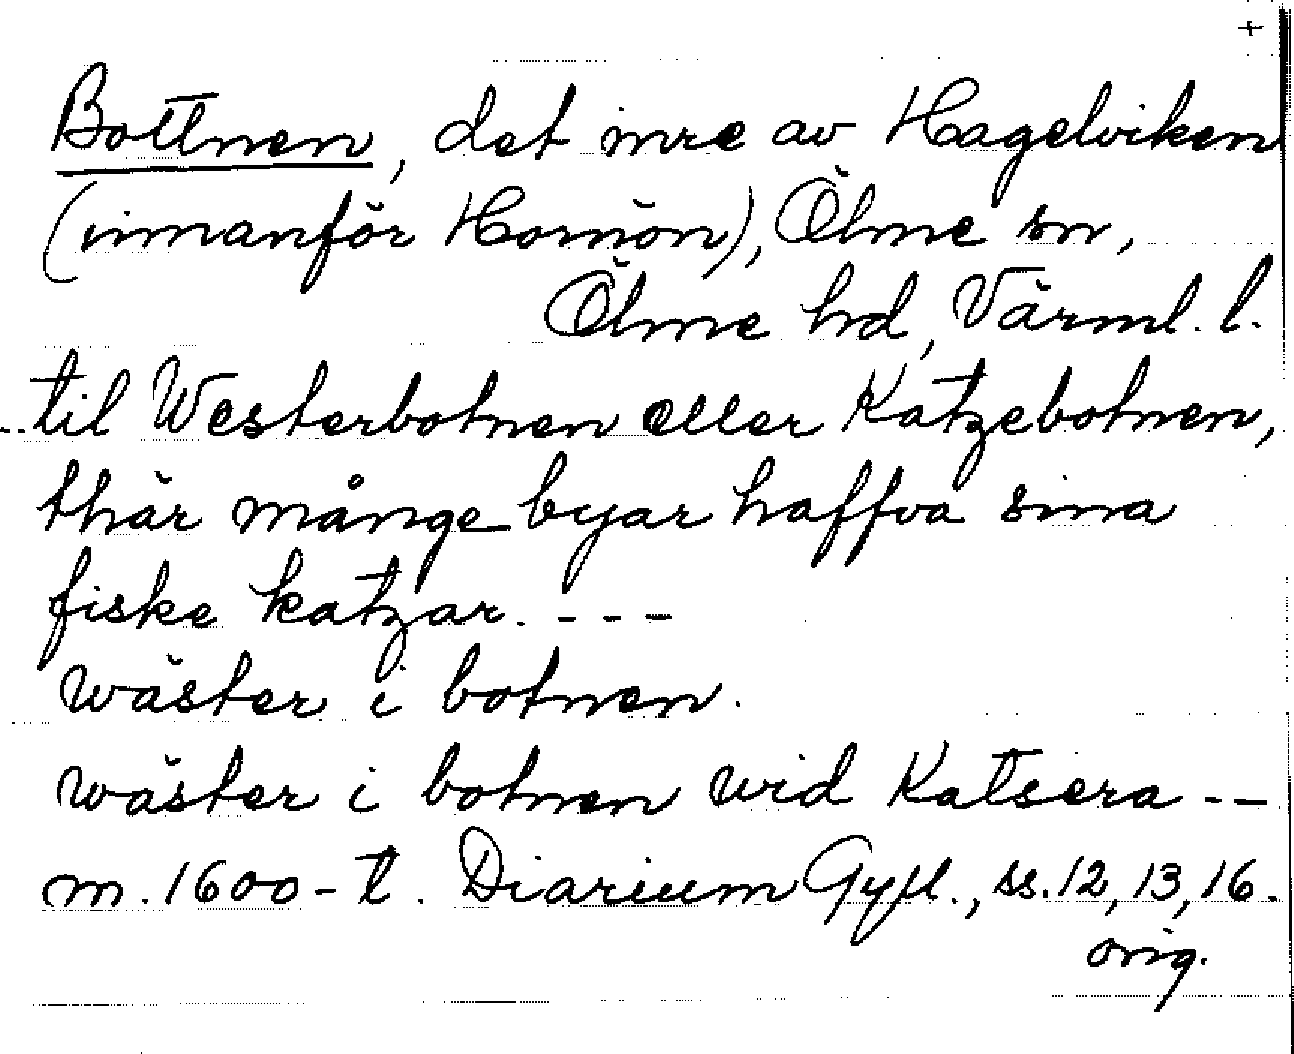 +
Bottnen, det inre av Hagelviken
(innanför Hornön), Ölme sn,
Ölme hd, Värml. l.
..til Westerbotnen eller Katzebotnen,
thär månge byar haffva sina
fiske katzar. - - -
wäster i botnen.
wäster i botnen wid Katsera --
m. 1600-t. Diarium Gyll., ss. 12, 13, 16.
orig.